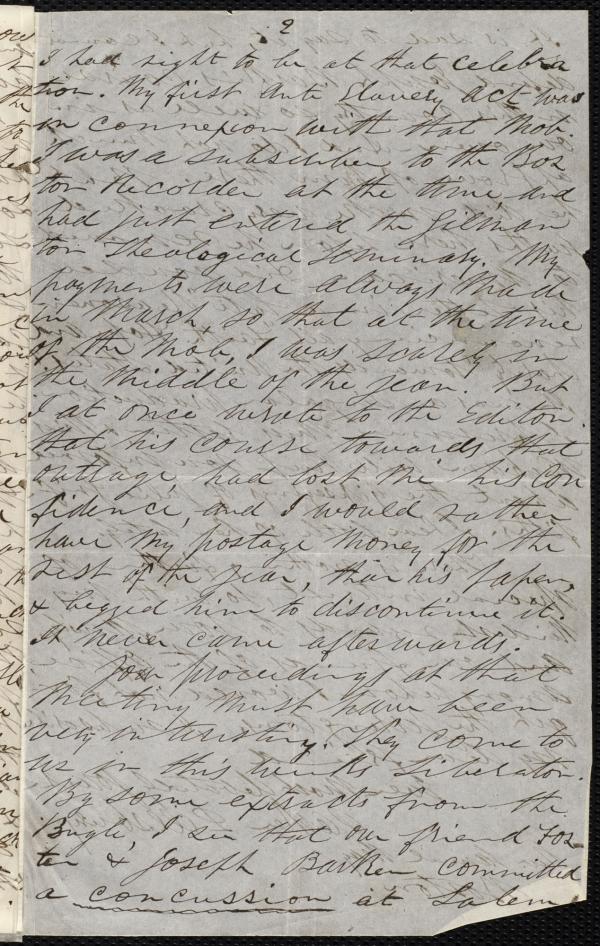 2
I had right to be at that celebra
tion. My first Anti Slavery act was
in connexion with that Mob.
I was a subscriber to the Bos
ton Recorder at the time, and
had just entered the Gilman
ton Theological Seminary. My
payments were always made
in March, so that at the time
of the Mob, I was scarcely in
the middle of the year. But
I at once wrote to the Editor
that his course towards that
outrage, had lost me his con
fidence, and I would rather
have my postage money for the
rest of the year, than his paper,
& begged him to discontinue it.
It never came afterwards.
Your proceedings at that
Meeting must have been
very interesting. They come to
us in this weeks Liberator.
By some extracts from the
Bugle, I see that our friend Fos
ter & Joseph Barker committed
a concussion at Salem